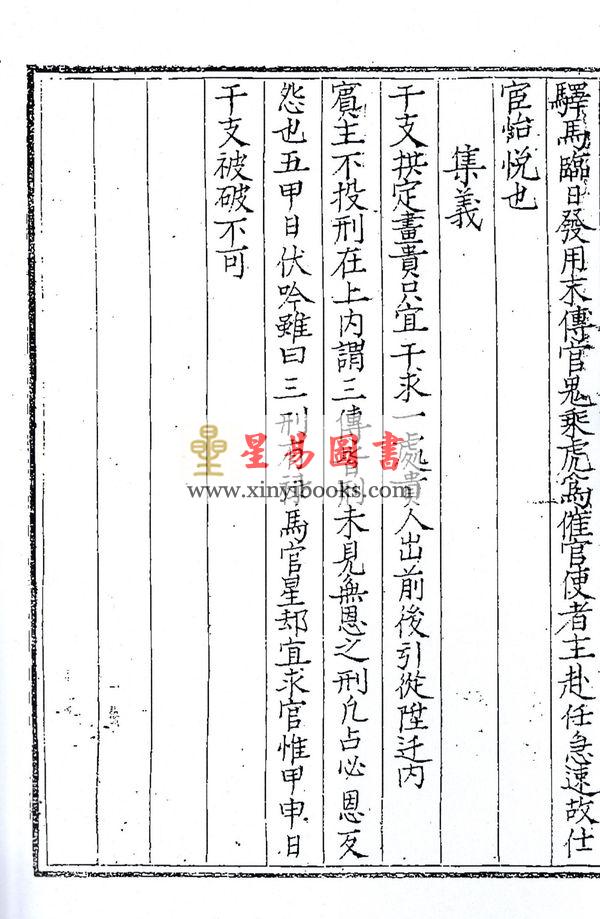 驛馬臨日發用末傳官鬼乘虎為催官使者主赴任急速故仕
宦怡悅也
集義
干支拱定晝貴只宜干求一處貴人出前後引從陞迁内
賓主不投刑在上内謂三傳皆刑未見無恩之刑凡占必恩反
怨也五甲日伏吟雖曰三刑有祿馬官星却宜求官惟甲申日
干支被破不可
星易圖書
www.xinyibooks.com